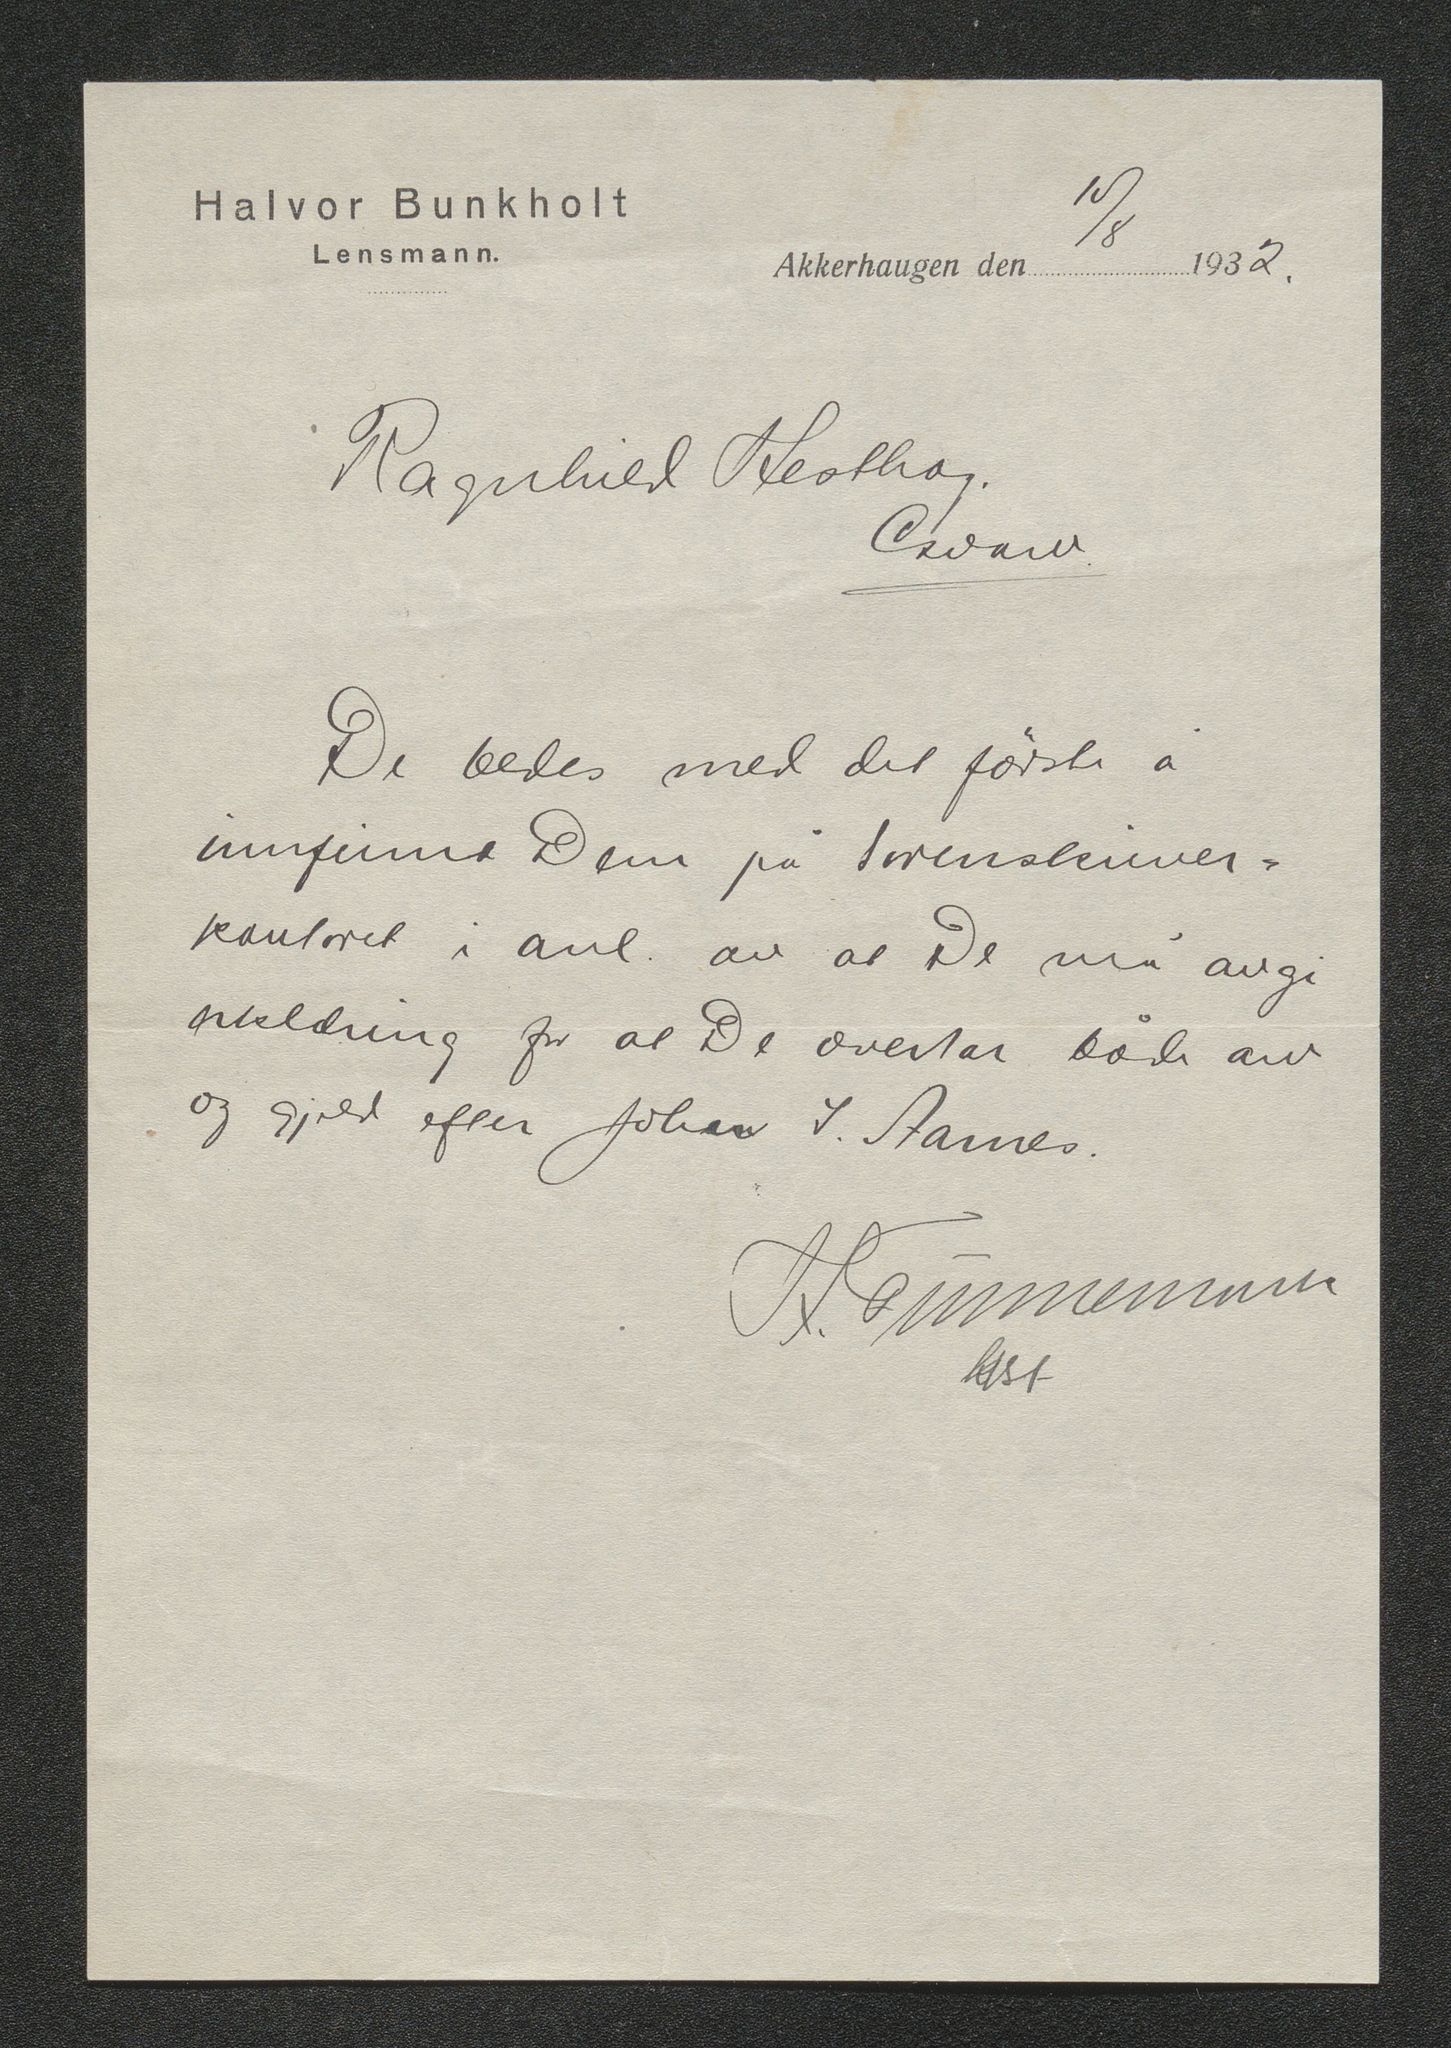 Halvor Bunkholt
Lensmann.
10/8
Akkerhaugen den 1932.
Ragnhild Hesthag.
De bedes med det første å
innfinne Dem på Sorenskriver-
kontoret i anl. av at De må avgi
erklæring for at De overtar både arv
og gjeld efter Johan I. Aarnes.
H.
kst